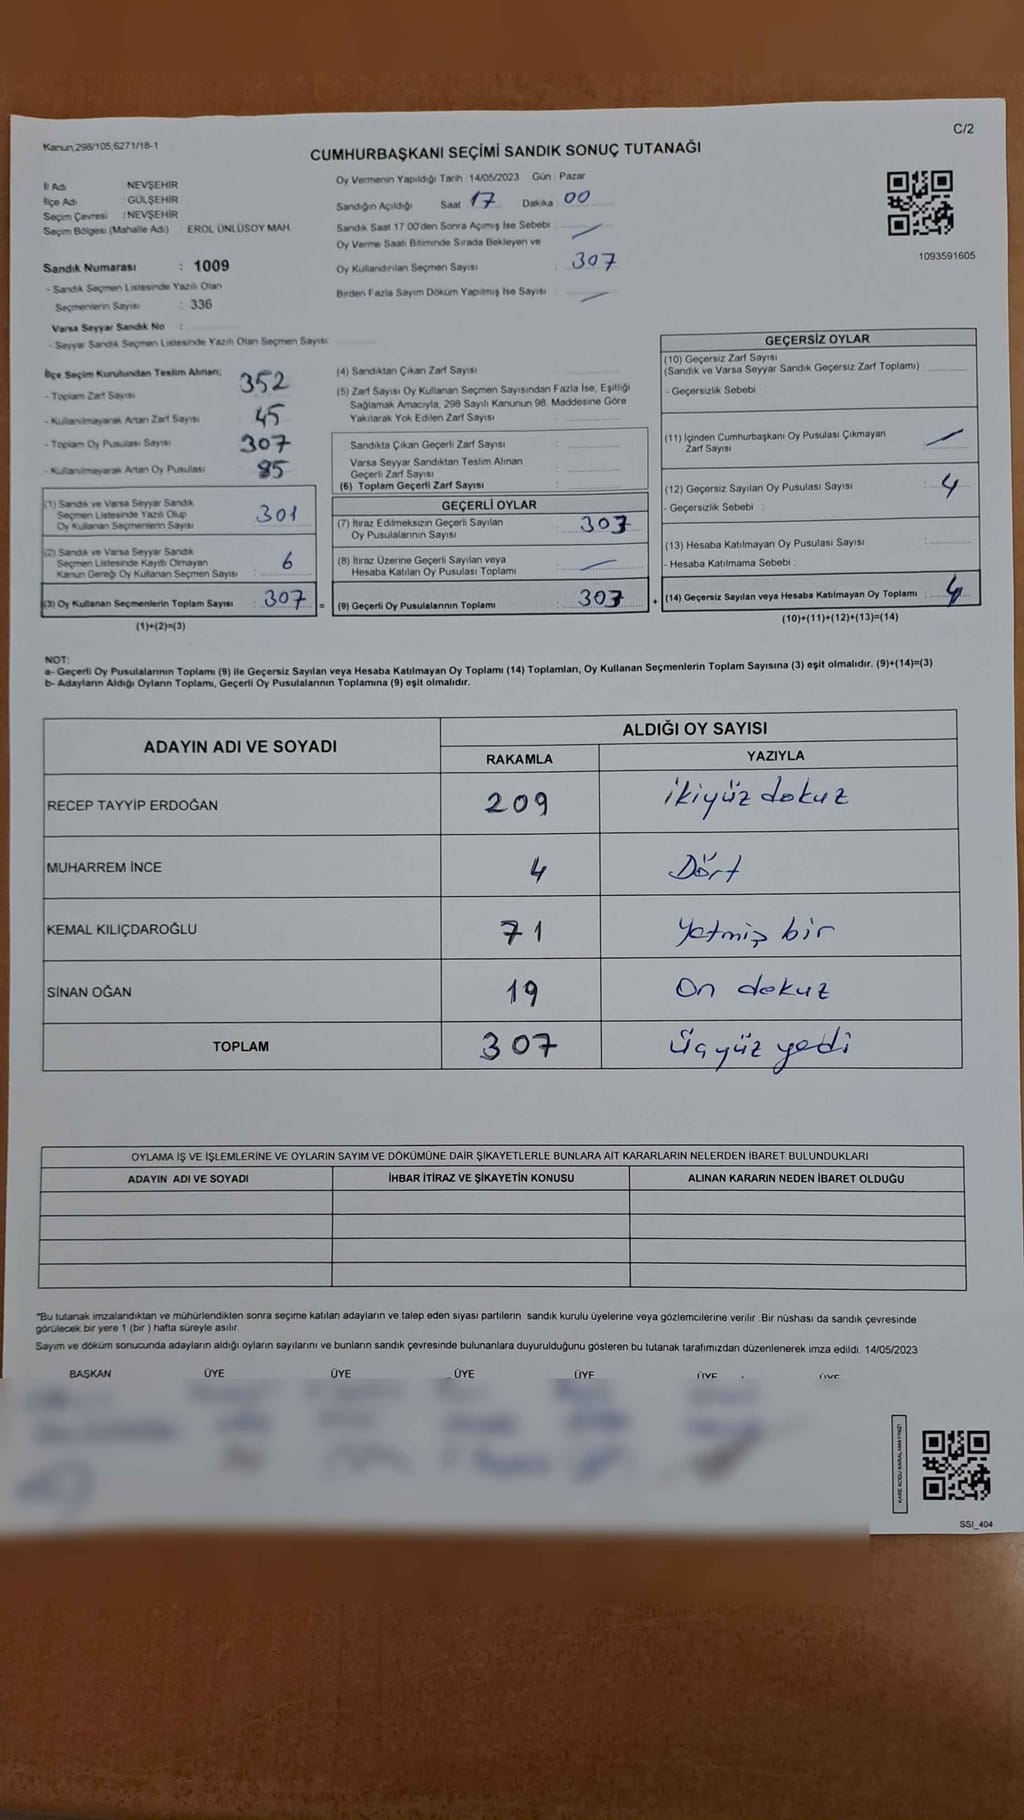 Kanun,298/105,6271/18-1
C/2
CUMHURBAŞKANI SEÇİMİ SANDIK SONUÇ TUTANAĞI
İl Adı : NEVŞEHİR
İlçe Adı : GÜLŞEHİR
Seçim Çevresi : NEVŞEHİR
Seçim Bölgesi (Mahalle Adı) : EROL ÜNLÜSOY MAH.
Sandık Numarası : 1009
- Sandık Seçmen Listesinde Yazılı Olan
Seçmenlerin Sayısı : 336
Varsa Seyyar Sandık No :
- Seyyar Sandık Seçmen Listesinde Yazılı Olan Seçmen Sayısı:
Oy Vermenin Yapıldığı Tarih : 14/05/2023 Gün : Pazar
Sandığın Açıldığı Saat : 17 Dakika : 00
Sandık Saat 17.00'den Sonra Açımış İse Sebebi :
Oy Verme Saati Bitiminde Sırada Bekleyen ve
Oy Kullandırılan Seçmen Sayısı : 307
Birden Fazla Sayım Döküm Yapılmış İse Sayısı :
1093591605
İlçe Seçim Kurulundan Teslim Alınan;
- Toplam Zarf Sayısı 352
- Kullanılmayarak Artan Zarf Sayısı 45
- Toplam Oy Pusulası Sayısı 307
- Kullanılmayarak Artan Oy Pusulası 85
(1) Sandık ve Varsa Seyyar Sandık
Seçmen Listesinde Yazılı Olup
Oy Kullanan Seçmenlerin Sayısı : 301
(2) Sandık ve Varsa Seyyar Sandık
Seçmen Listesinde Kayıtlı Olmayan
Kanun Gereği Oy Kullanan Seçmen Sayısı : 6
(3) Oy Kullanan Seçmenlerin Toplam Sayısı : 307 =
(1)+(2)=(3)
(4) Sandıktan Çıkan Zarf Sayısı :
(5) Zarf Sayısı Oy Kullanan Seçmen Sayısından Fazla İse, Eşitliği
Sağlamak Amacıyla, 298 Sayılı Kanunun 98. Maddesine Göre
Yakılarak Yok Edilen Zarf Sayısı :
Sandıkta Çıkan Geçerli Zarf Sayısı :
Varsa Seyyar Sandıktan Teslim Alınan
Geçerli Zarf Sayısı :
(6) Toplam Geçerli Zarf Sayısı :
GEÇERLİ OYLAR
(7) İtiraz Edilmeksizin Geçerli Sayılan
Oy Pusulalarının Sayısı : 303
(8) İtiraz Üzerine Geçerli Sayılan veya
Hesaba Katılan Oy Pusulası Toplamı :
(9) Geçerli Oy Pusulalarının Toplamı : 303 +
GEÇERSİZ OYLAR
(10) Geçersiz Zarf Sayısı
(Sandık ve Varsa Seyyar Sandık Geçersiz Zarf Toplamı) :
- Geçersizlik Sebebi :
(11) İçinden Cumhurbaşkanı Oy Pusulası Çıkmayan
Zarf Sayısı :
(12) Geçersiz Sayılan Oy Pusulası Sayısı : 4
- Geçersizlik Sebebi :
(13) Hesaba Katılmayan Oy Pusulası Sayısı :
- Hesaba Katılmama Sebebi :
(14) Geçersiz Sayılan veya Hesaba Katılmayan Oy Toplamı : 4
(10)+(11)+(12)+(13)=(14)
NOT:
a- Geçerli Oy Pusulalarının Toplamı (9) ile Geçersiz Sayılan veya Hesaba Katılmayan Oy Toplamı (14) Toplamları, Oy Kullanan Seçmenlerin Toplam Sayısına (3) eşit olmalıdır. (9)+(14)=(3)
b- Adayların Aldığı Oyların Toplamı, Geçerli Oy Pusulalarının Toplamına (9) eşit olmalıdır.
ADAYIN ADI VE SOYADI
ALDIĞI OY SAYISI
RAKAMLA YAZIYLA
RECEP TAYYİP ERDOĞAN 209 ikiyüz dokuz
MUHARREM İNCE 4 Dört
KEMAL KILIÇDAROĞLU 71 Yetmiş bir
SİNAN OĞAN 19 On dokuz
TOPLAM 307 Üçyüz yedi
OYLAMA İŞ VE İŞLEMLERİNE VE OYLARIN SAYIM VE DÖKÜMÜNE DAİR ŞİKAYETLERLE BUNLARA AİT KARARLARIN NELERDEN İBARET BULUNDUKLARI
ADAYIN ADI VE SOYADI İHBAR İTİRAZ VE ŞİKAYETİN KONUSU ALINAN KARARIN NEDEN İBARET OLDUĞU
*Bu tutanak imzalandıktan ve mühürlendikten sonra seçime katılan adayların ve talep eden siyasi partilerin sandık kurulu üyelerine veya gözlemcilerine verilir. Bir nüshası da sandık çevresinde
görülecek bir yere 1 (bir ) hafta süreyle asılır.
Sayım ve döküm sonucunda adayların aldığı oyların sayılarını ve bunların sandık çevresinde bulunanlara duyurulduğunu gösteren bu tutanak tarafımızdan düzenlenerek imza edildi. 14/05/2023
BAŞKAN ÜYE ÜYE ÜYE ÜYE ÜYE ÜYE
KARE KODU KARALAMAYINIZ!
SSI_404